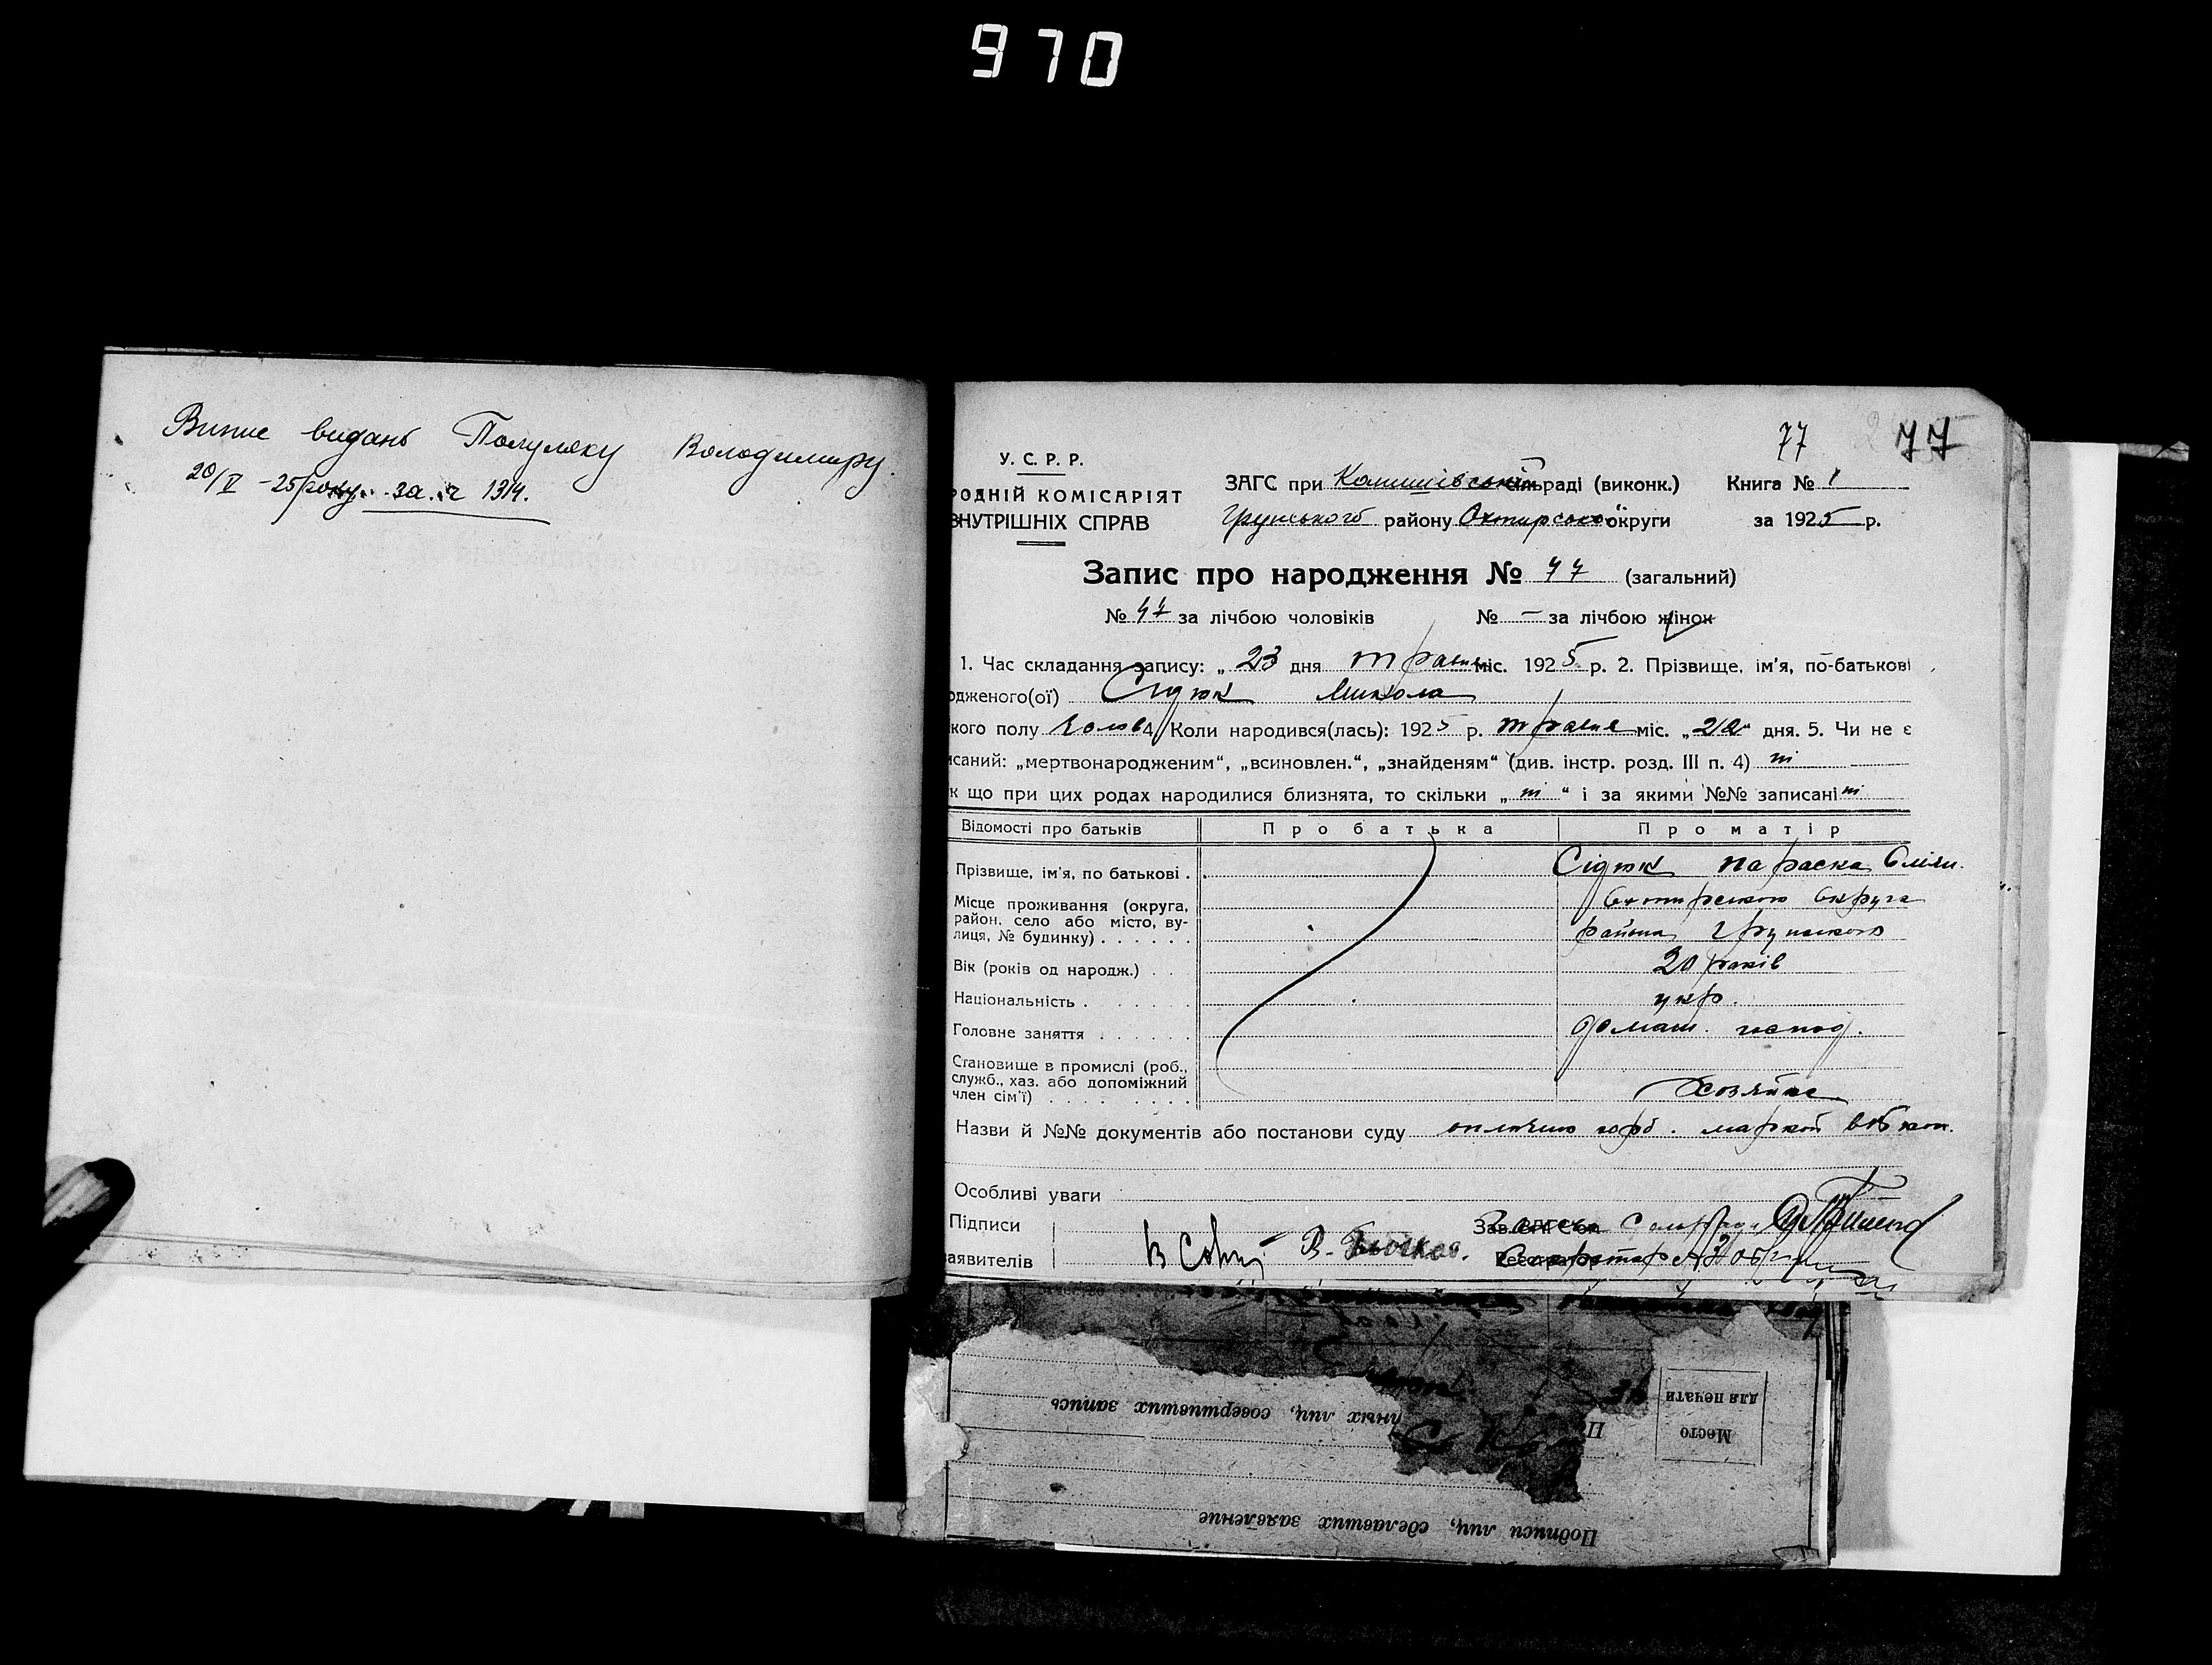 970
Випис видань Полуляку Володимиру.
20/V -25 року. за. ч 1314.
77 77
У. С. Р. Р.
РОДНІЙ КОМІСАРІЯТ
ВНУТРІШНІХ СПРАВ
ЗАГС при раді (виконк.) Книга № 1
Грунського району Охтирської округи за 1925 р.
Запис про народження № 77 (загальний)
№ 47 за лічбою чоловіків № — за лічбою жінок
1. Час складання запису: „ 23 дня травня міс. 1925 р. 2. Прізвище, ім'я, по-батькові
одженого(ої) Сідюк Микола
кого полу чолов 4. Коли народився(лась): 1925 р. травня міс. „22“ дня. 5. Чи не є
исаний: „мертвонародженим“, „всиновлен.“, „знайденям“ (див. інстр. розд. III п. 4) ні
к що при цих родах народилися близнята, то скільки „ ні “ і за якими №№ записані ні
Відомості про батьків Про батька Про матір
Прізвище, ім'я, по батькові . Сідюк Параска
Місце проживання (округа, Охтирською Округа
район, село або місто, ву-
лиця, № будинку) . . . . . . района Грунського
Вік (років од народж.) . . 20 років
Національність . . . . . . . укр.
Головне заняття . . . . . . домаш. господ.
Становище в промислі (роб.,
служб., хаз. або допоміжний
член сім'ї) . . . . . . . . . Хозяйка
Назви й №№ документів або постанови суду оплачено герб. маркой коп.
Особливі уваги
Підписи
аявителів
Секретар
Место
для печати
нных лиц, совершивших запись
Подписи лиц, сделавших заявление